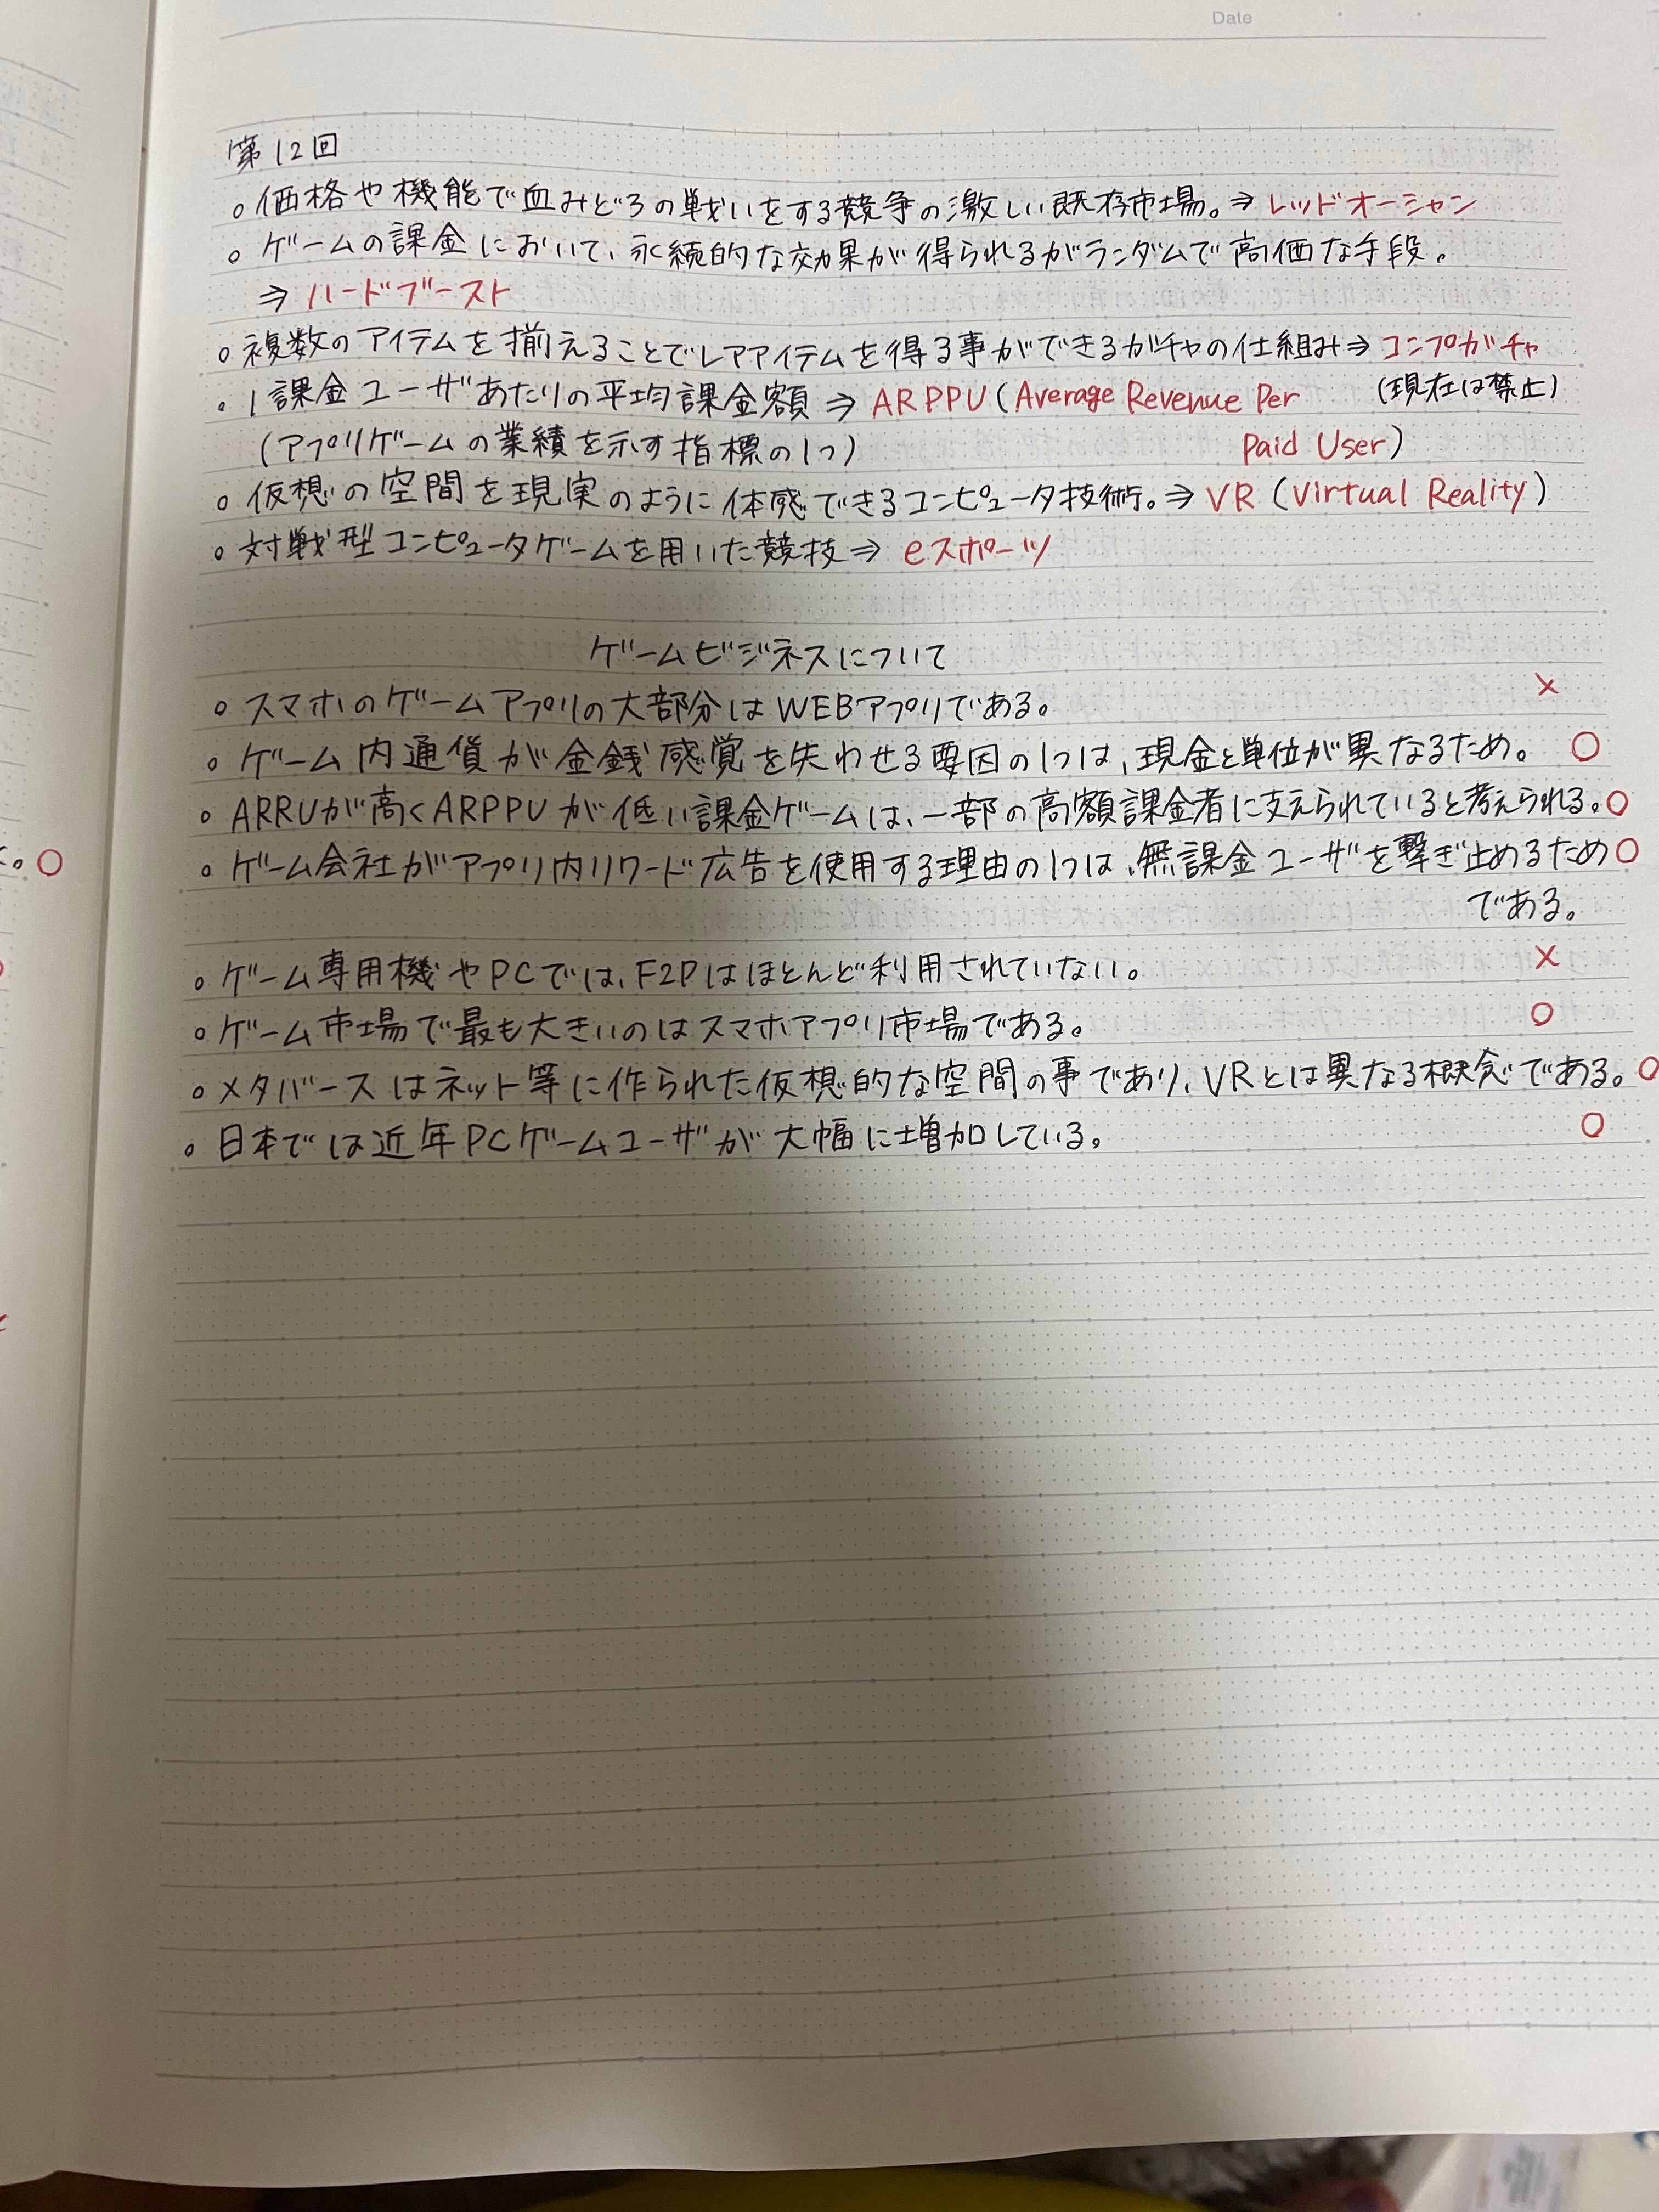 Date
第12回
○ 価格や機能で血みどろの戦いをする競争の激しい既存市場。⇒ レッドオーシャン
○ ゲームの課金において、永続的な効果が得られるがランダムで高価な手段。
⇒ ハードブースト
○ 複数のアイテムを揃えることでレアアイテムを得る事ができるガチャの仕組み⇒ コンプガチャ
(現在は禁止)
○ 1課金ユーザあたりの平均課金額 ⇒ ARPPU (Average Revenue Per
Paid User)
(アプリゲームの業績を示す指標の1つ)
○ 仮想の空間を現実のように体感できるコンピュータ技術。⇒ VR (Virtual Reality)
○ 対戦型コンピュータゲームを用いた競技⇒ eスポーツ
ゲームビジネスについて
○ スマホのゲームアプリの大部分はWEBアプリである。 ×
○ ゲーム内通貨が金銭感覚を失わせる要因の1つは、現金と単位が異なるため。 ○
○ ARRUが高くARPPUが低い課金ゲームは、一部の高額課金者に支えられていると考えられる。○
○ ゲーム会社がアプリ内リワード広告を使用する理由の1つは、無課金ユーザを繋ぎ止めるため○
である。
○ ゲーム専用機やPCでは、F2Pはほとんど利用されていない。 ×
○ ゲーム市場で最も大きいのはスマホアプリ市場である。 ○
○ メタバースはネット等に作られた仮想的な空間の事であり、VRとは異なる概念である。○
○ 日本では近年PCゲームユーザが大幅に増加している。 ○